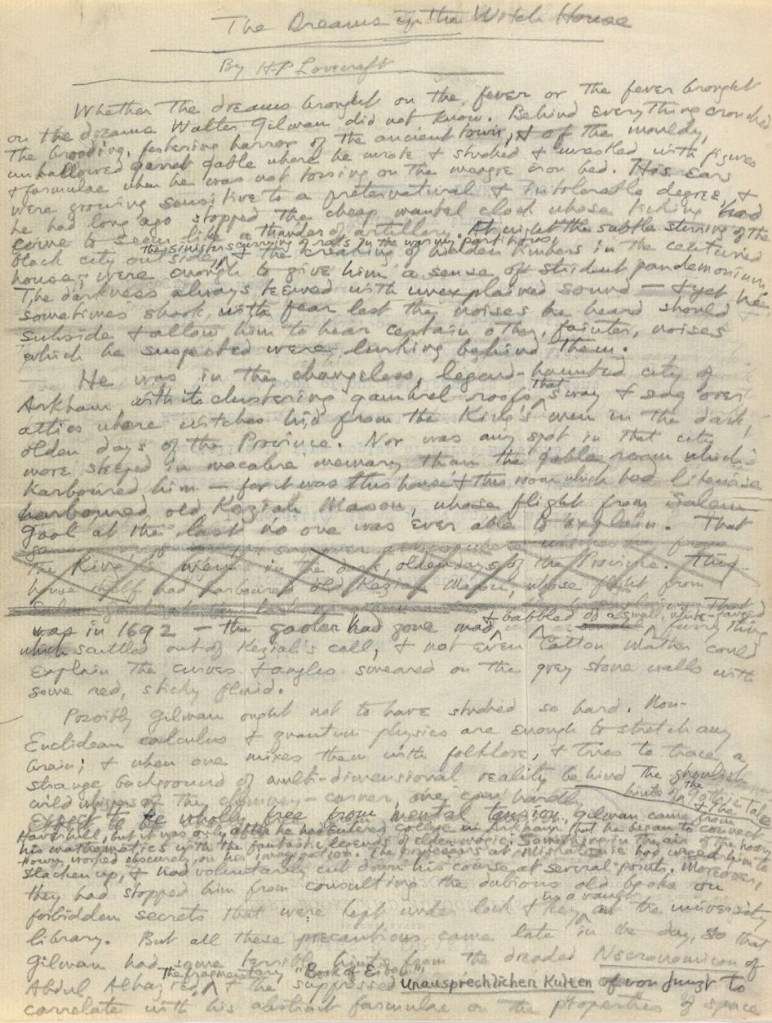 The Dreams in the Witch House
By H.P. Lovecraft
Whether the dreams brought on the fever or the fever brought
on the dreams Walter Gilman did not know. Behind everything crouched
the brooding, festering horror of the ancient town, & of the mouldy,
unhallowed garret gable where he wrote & studied & wrestled with figures
& formulae when he was not tossing on the meagre iron bed. His ears
were growing sensitive to a preternatural & intolerable degree, &
he had long ago stopped the cheap mantel clock whose ticking had
come to seem like a thunder of artillery. At night the subtle stirring of the
black city outside, the sinister scurrying of rats in the wormy partitions, & the creaking of hidden timbers in the centuried
house, were enough to give him a sense of strident pandemonium.
The darkness always teemed with unexplained sound — & yet he
sometimes shook with fear lest the noises he heard should
subside & allow him to hear certain other, fainter, noises
which he suspected were lurking behind them.
He was in the changeless, legend-haunted city of
Arkham with its clustering gambrel roofs that sway & sag over
attics where witches hid from the King's men in the dark,
olden days of the Province. Nor was any spot in that city
more steeped in macabre memory than the gable room which
harboured him — for it was this house & this room which had likewise
harboured old Keziah Mason, whose flight from Salem
Gaol at the last no one was ever able to explain. That
the King's men in the dark, olden days of the Province. The
house itself had harboured old Keziah Mason, whose flight from
was in 1692 — the gaoler had gone mad & babbled of a small, white-fanged furry thing
which scuttled out of Keziah's cell, & not even Cotton Mather could
explain the curves & angles smeared on the grey stone walls with
some red, sticky fluid.
Possibly Gilman ought not to have studied so hard. Non-
Euclidean calculus & quantum physics are enough to stretch any
brain; & when one mixes them with folklore, & tries to trace a
strange background of multi-dimensional reality behind the ghoulish
hints of the Gothic tales & the
wild whispers of the chimney-corner, one can hardly
expect to be wholly free from mental tension. Gilman came from
Haverhill, but it was only after he had entered college in Arkham that he began to connect
his mathematics with the fantastic legends of elder magic. Something in the air of the hoary
town worked obscurely on his imagination. The professors at Miskatonic had urged him to
slacken up, & had voluntarily cut down his course at several points. Moreover,
they had stopped him from consulting the dubious old books on
forbidden secrets that were kept under lock & key in a vault at the university
library. But all these precautions came late in the day, so that
Gilman had some terrible hints from the dreaded Necronomicon of
Abdul Alhazred, the fragmentary "Book of Eibon", & the suppressed Unausprechlichen Kulten of von Junzt to
correlate with his abstract formulae on the properties of space